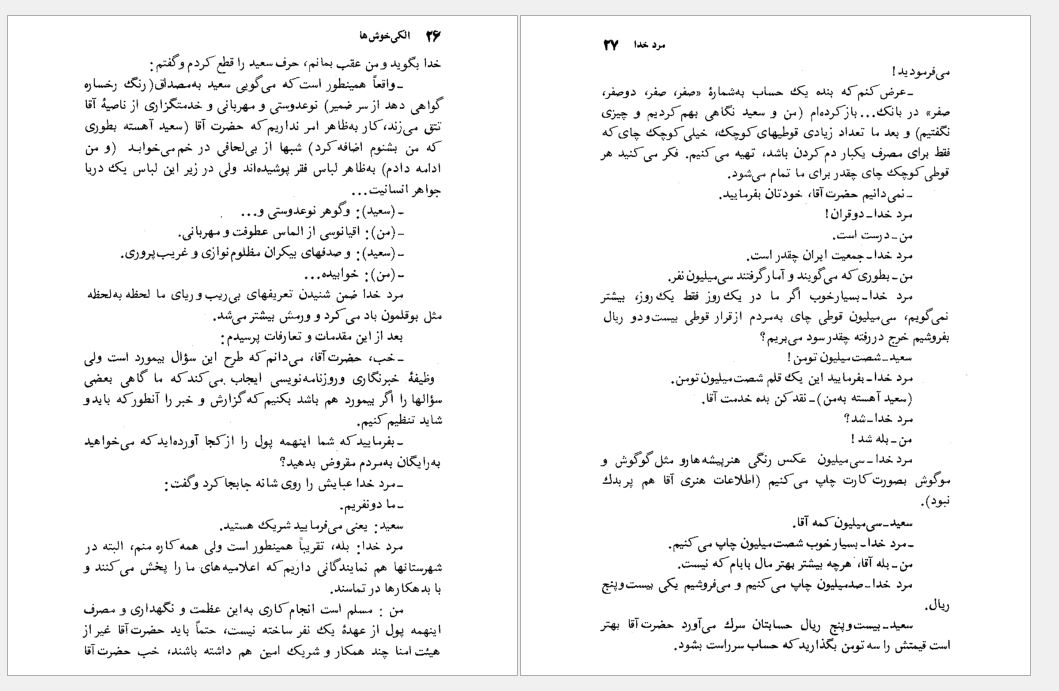 ۲۶ الکی‌خوش‌ها
خدا بگوید و من عقب بمانم، حرف سعید را قطع کردم و گفتم:
ـ واقعاً همینطور است که می‌گویی سعید به‌مصداق (رنگ رخساره
گواهی دهد از سر ضمیر) نوعدوستی و مهربانی و خدمتگزاری از ناصیهٔ آقا
تتق می‌زند، کار به‌ظاهر امر نداریم که حضرت آقا (سعید آهسته بطوری
که من بشنوم اضافه کرد) شبها از بی‌لحافی در خم می‌خوابد (و من
ادامه دادم) به‌ظاهر لباس فقر پوشیده‌اند ولی در زیر این لباس یک دریا
جواهر انسانیت...
ـ (سعید): وگوهر نوعدوستی و...
ـ (من): اقیانوسی از الماس عطوفت و مهربانی.
ـ (سعید): و صدفهای بیکران مظلوم‌نوازی و غریب‌پروری.
ـ (من): خوابیده...
مرد خدا ضمن شنیدن تعریفهای بی‌ریب و ریای ما لحظه به‌لحظه
مثل بوقلمون باد می‌کرد و ورمش بیشتر می‌شد.
بعد از این مقدمات و تعارفات پرسیدم:
ـ خب، حضرت آقا، می‌دانم که طرح این سؤال بیمورد است ولی
وظیفهٔ خبرنگاری و روزنامه‌نویسی ایجاب می‌کند که ما گاهی بعضی
سؤالها را اگر بیمورد هم باشد بکنیم که گزارش و خبر را آنطور که باید و
شاید تنظیم کنیم.
ـ بفرمایید که شما اینهمه پول را از کجا آورده‌اید که می‌خواهید
به‌رایگان به‌مردم مقروض بدهید؟
ـ مرد خدا عبایش را روی شانه جابجا کرد و گفت:
ـ ما دو نفریم.
سعید: یعنی می‌فرمایید شریک هستید.
مرد خدا: بله، تقریباً همینطور است ولی همه کاره منم، البته در
شهرستانها هم نمایندگانی داریم که اعلامیه‌های ما را پخش می‌کنند و
با بدهکارها در تماسند.
من : مسلم است انجام کاری به‌این عظمت و نگهداری و مصرف
اینهمه پول از عهدهٔ یک نفر ساخته نیست، حتماً باید حضرت آقا غیر از
هیئت امنا چند همکار و شریک امین هم داشته باشند، خب حضرت آقا
مرد خدا ۲۷
می‌فرمودید!
ـ عرض کنم که بنده یک حساب به‌شمارهٔ «صفر، صفر، دوصفر،
صفر» در بانک... باز کرده‌ام (من و سعید نگاهی بهم کردیم و چیزی
نگفتیم) و بعد ما تعداد زیادی قوطیهای کوچک، خیلی کوچک چای که
فقط برای مصرف یکبار دم کردن باشد، تهیه می‌کنیم. فکر می‌کنید هر
قوطی کوچک چای چقدر برای ما تمام می‌شود.
ـ نمی‌دانیم حضرت آقا، خودتان بفرمایید.
مرد خدا ـ دوقران!
من ـ درست است.
مرد خدا ـ جمعیت ایران چقدر است.
من ـ بطوری که می‌گویند و آمار گرفتند سی‌میلیون نفر.
مرد خدا ـ بسیار خوب اگر ما در یک روز فقط یک روز، بیشتر
نمی‌گویم، سی‌میلیون قوطی چای به‌مردم از قرار قوطی بیست و دو ریال
بفروشیم خرج در رفته چقدر سود می‌بریم؟
سعید ـ شصت میلیون تومن!
مرد خدا ـ بفرمایید این یک قلم شصت میلیون تومن.
(سعید آهسته به‌من) ـ نقد کن بده خدمت آقا.
مرد خدا ـ شد؟
من ـ بله شد!
مرد خدا ـ سی‌میلیون عکس رنگی هنرپیشه‌هارو مثل گوگوش و
موگوش بصورت کارت چاپ می‌کنیم (اطلاعات هنری آقا هم پر بدک
نبود).
سعید ـ سی‌میلیون کمه آقا.
ـ مرد خدا ـ بسیار خوب شصت میلیون چاپ می‌کنیم.
من ـ بله آقا، هرچه بیشتر بهتر مال بابام که نیست.
مرد خدا ـ صدمیلیون چاپ می‌کنیم و می‌فروشیم یکی بیست و پنج
ریال.
سعید ـ بیست و پنج ریال حسابتان سرک می‌آورد حضرت آقا بهتر
است قیمتش را سه تومن بگذارید که حساب سرراست بشود.